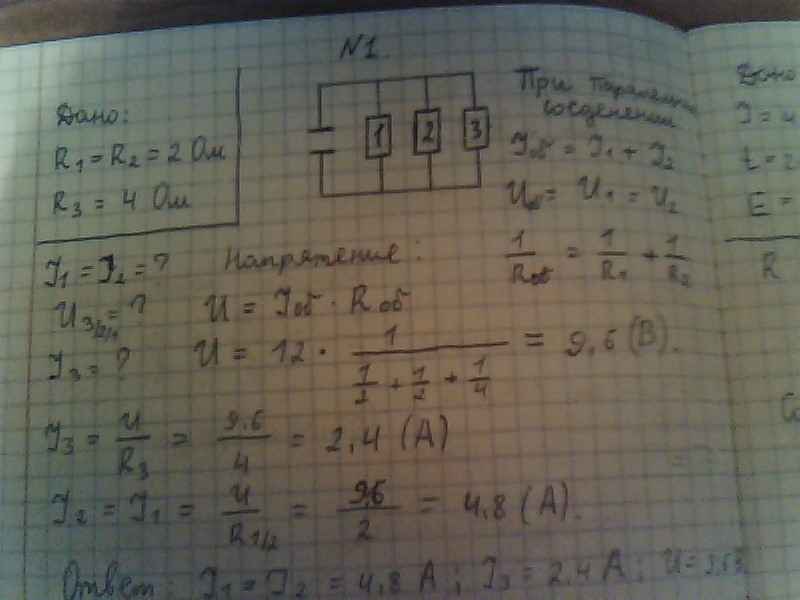 N1.
Дано:
R₁ = R₂ = 2 Ом
R₃ = 4 Ом
1 2 3
При
соединении
Iоб = I₁ + I₂
Uоб = U₁ = U₂
1/Rоб = 1/R₁ + 1/R₂
I₁ = I₂ = ?
U₃/₂/₁ = ?
I₃ = ?
Напряжение:
U = Iоб · Rоб
U = 12 · 1/(1/2 + 1/2 + 1/4) = 9,6 (В).
I₃ = U/R₃ = 9.6/4 = 2,4 (А)
I₂ = I₁ = U/R₁/₂ = 9,6/2 = 4,8 (А).
Ответ: I₁ = I₂ = 4,8 А; I₃ = 2,4 А; U =
Дано
I =
t = 2
E =
R